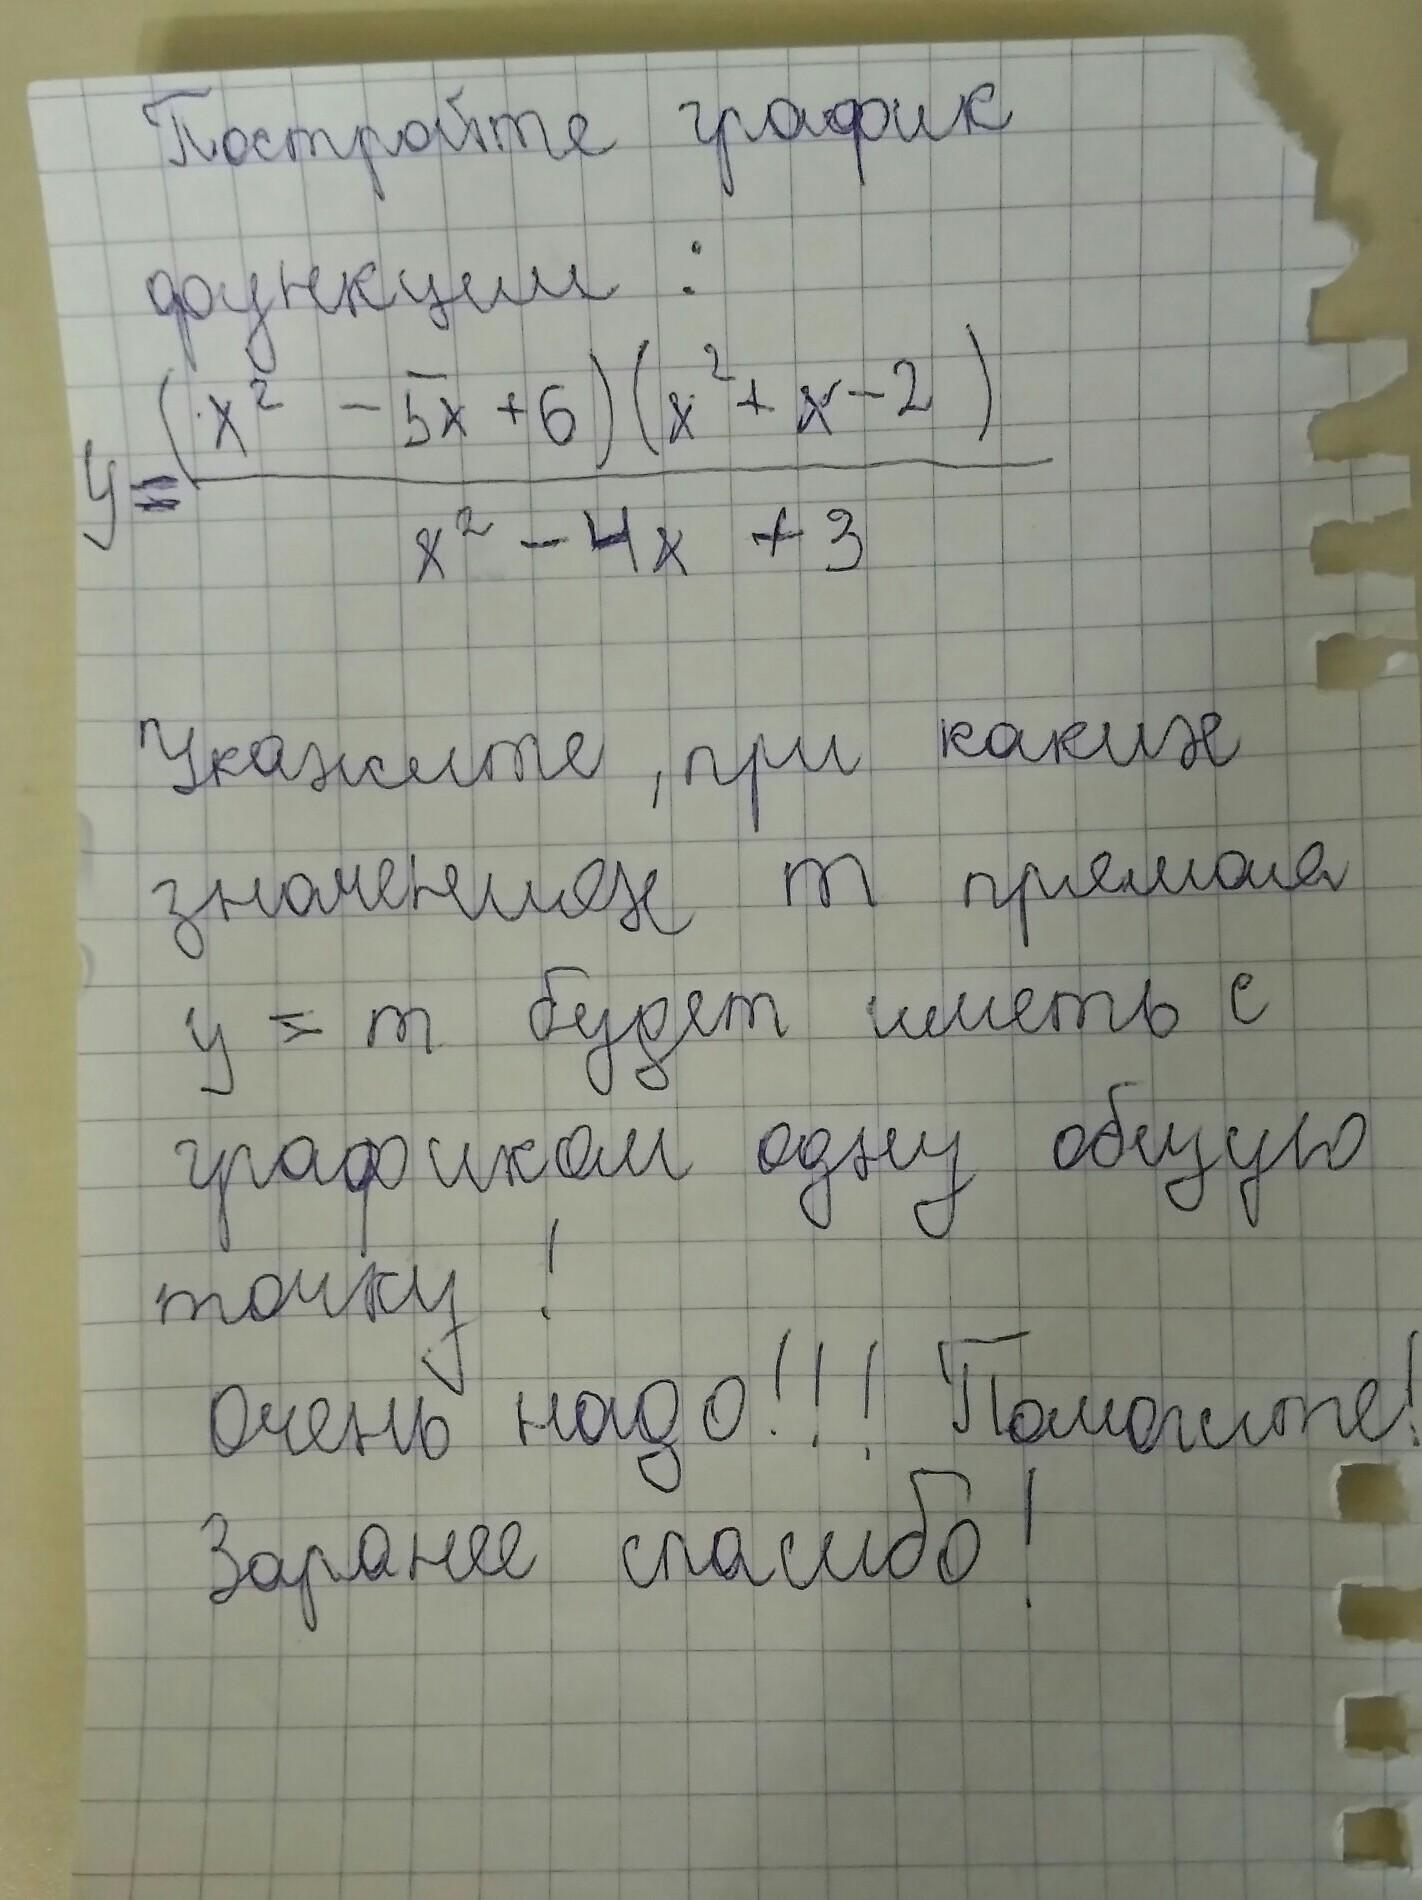 Постройте график
функции :
y = (x² - 5x + 6)(x² + x - 2)
x² - 4x + 3
Укажите, при каких
значениях m прямая
y = m будет иметь с
графиком одну общую
точку !
Очень надо!!! Помогите!
Заранее спасибо!